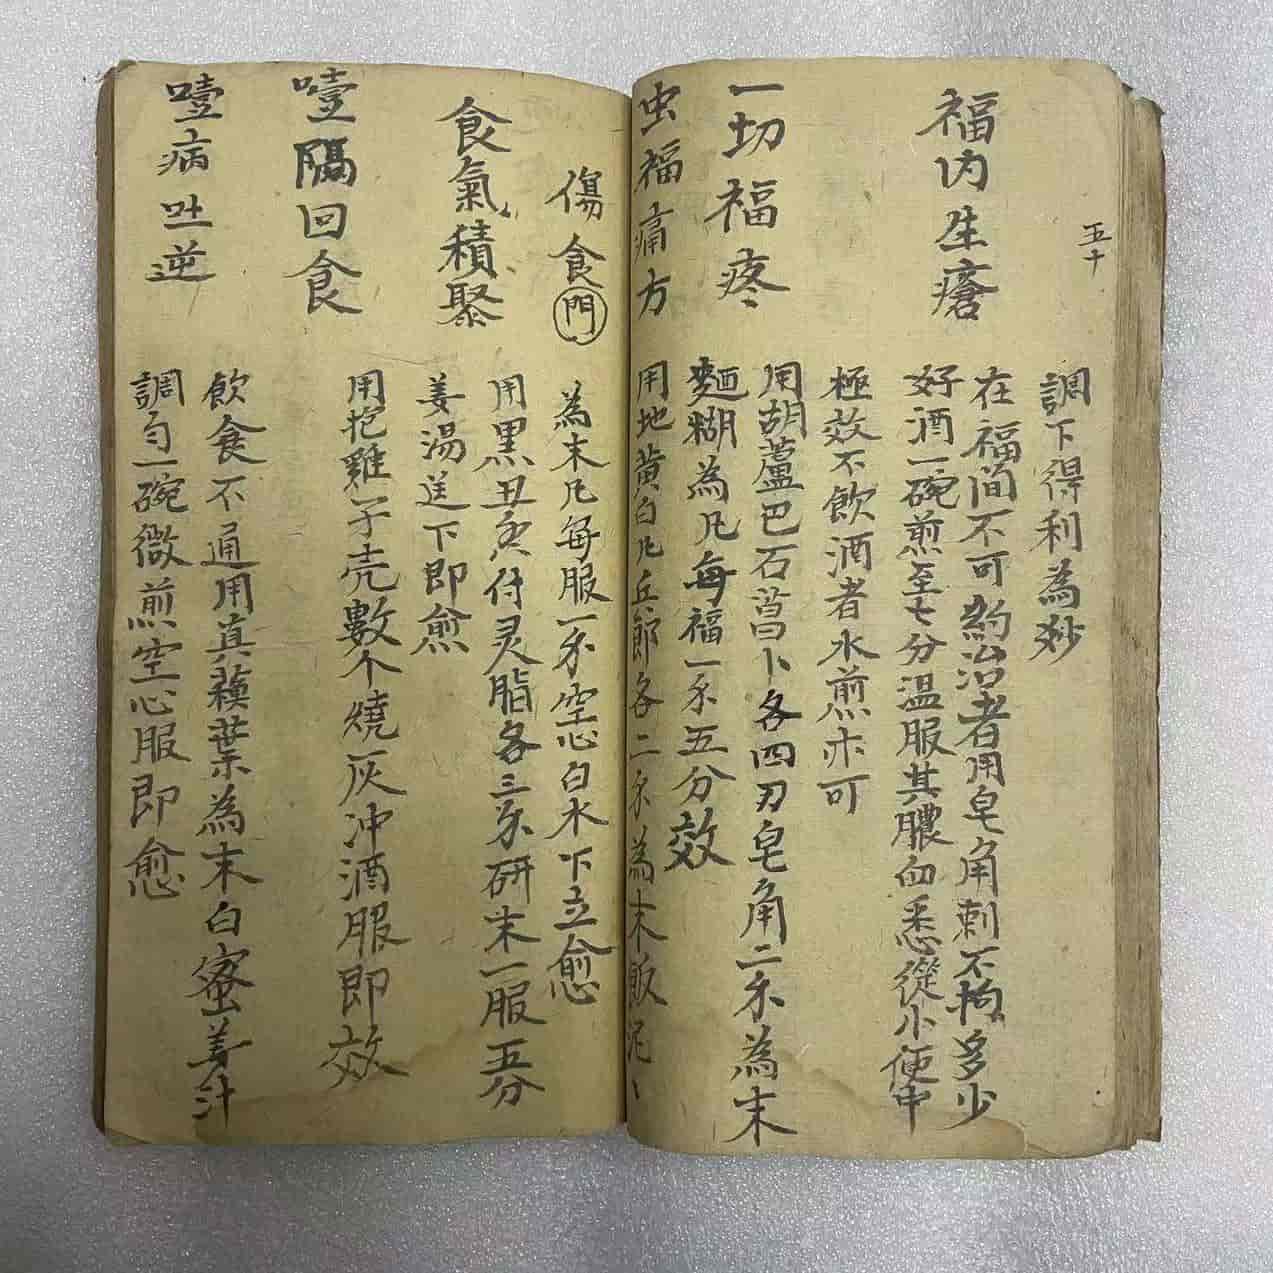 五十
調下得利為妙
福内生瘡
在福间不可药治者用皂角刺不拘多少
好酒一碗煎至七分温服其膿血悉從小便中
極效不飲酒者水煎亦可
一切福疼
用胡蘆巴石菖卜各四刃皂角二禾為末
麵糊為凡每福一禾五分效
虫福痛方
用地黄白凡丘郎各二禾為末飯泥丶
傷食門
為末凡每服一禾空心白水下立愈
食氣積聚
用黑丑灸付灵脂各三禾研末一服五分
姜湯送下即愈
噎隔回食
用抱雞子壳數个燒灰冲酒服即效
噎病吐逆
飲食不通用真蘓葉為末白蜜姜汁
調匀一碗微煎空心服即愈